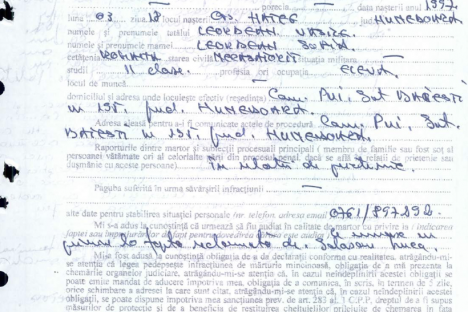 porecla — data nașterii anul 1997
luna 03 ziua 18 locul nașterii Ors. HATEG jud. HUNEDOARA
numele și prenumele tatălui LEORDEAN VASILE
numele și prenumele mamei LEORDEAN
cetățenia ROMANA starea civilă NECASATORIT situația militară —
studii 11 clase profesia ori ocupația ELEVA
locul de muncă —
domiciliul și adresa unde locuiește efectiv (reședința) Com. Pui, Sat BAIESTI
nr 135, jud. HUNEDOARA
Adresa aleasă pentru a-i fi comunicate actele de procedură Com. Pui, Sat.
BAIESTI nr 135, jud. HUNEDOARA
Raporturile dintre martor și subiecții procesuali principali ( membru de familie sau fost soț al
persoanei vătămate ori al celorlalte părți din procesul penal, dacă se află în relații de prietenie sau
dușmănie cu aceste persoane) în relatii de prietenie
Paguba suferită în urma săvârșirii infracțiunii —
alte date pentru stabilirea situației personale (nr. telefon, adresa email) 0761/897292
Mi s-a adus la cunoștință că urmează să fiu audiat în calitate de martor cu privire la ( indicarea
faptei
la fapta reclamata de
Mi-a fost adusă la cunoștință obligația de a da declarații conforme cu realitatea, atrăgându-mi-
se atenția că legea pedepsește infracțiunea de mărturie mincinoasă, obligația de a mă prezenta la
chemările organelor judiciare, atrăgându-mi-se atenția că, în cazul neîndeplinirii acestei obligații se
poate emite mandat de aducere împotriva mea, obligația de a comunica, în scris, în termen de 5 zile,
orice schimbare a adresei la care sunt citat, atrăgându-mi-se atenția că, în cazul neîndeplinirii acestei
obligații, se poate dispune împotriva mea sancțiunea prev. de art. 283 al. 1 C.P.P, dreptul de a fi supus
măsurilor de protecție și de a beneficia de restituirea cheltuielilor prilejuite de chemarea în fața